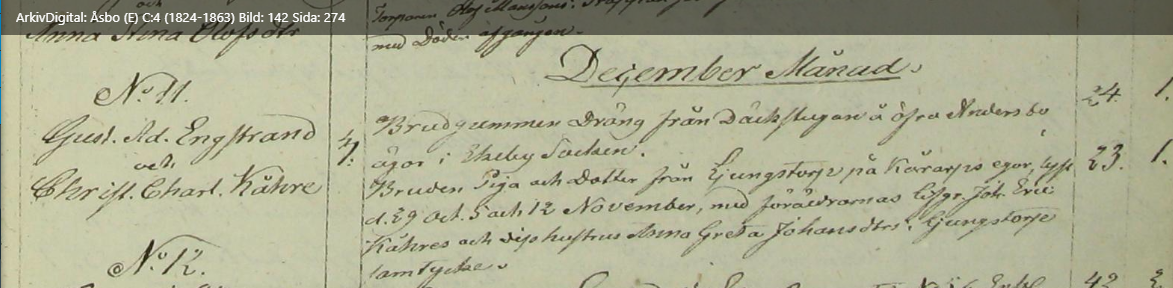 ArkivDigital: Åsbo (E) C:4 (1824-1863) Bild: 142 Sida: 274
Torparen Olof
Anna Stina Olofsdtr
med Döden afgången.
December Månad.
No 11.
Gust. Ad. Engstrand
och
Christ. Charl. Kåhre
4.
Brudgummen Dräng från Backstugan å öfra Andersbo
ägor i Ekeby Socken.
Bruden Piga och Dotter från Ljungstorp på Kårarps egor, lyst
d. 29 Oct. 5 och 12 November, med föräldrarnas Joh. Eric
Kåhres och dess hustrus Anna Greta Johansdtrs. Ljungstorp
samtycke.
24. 1.
23. 1.
No 12.
42 2